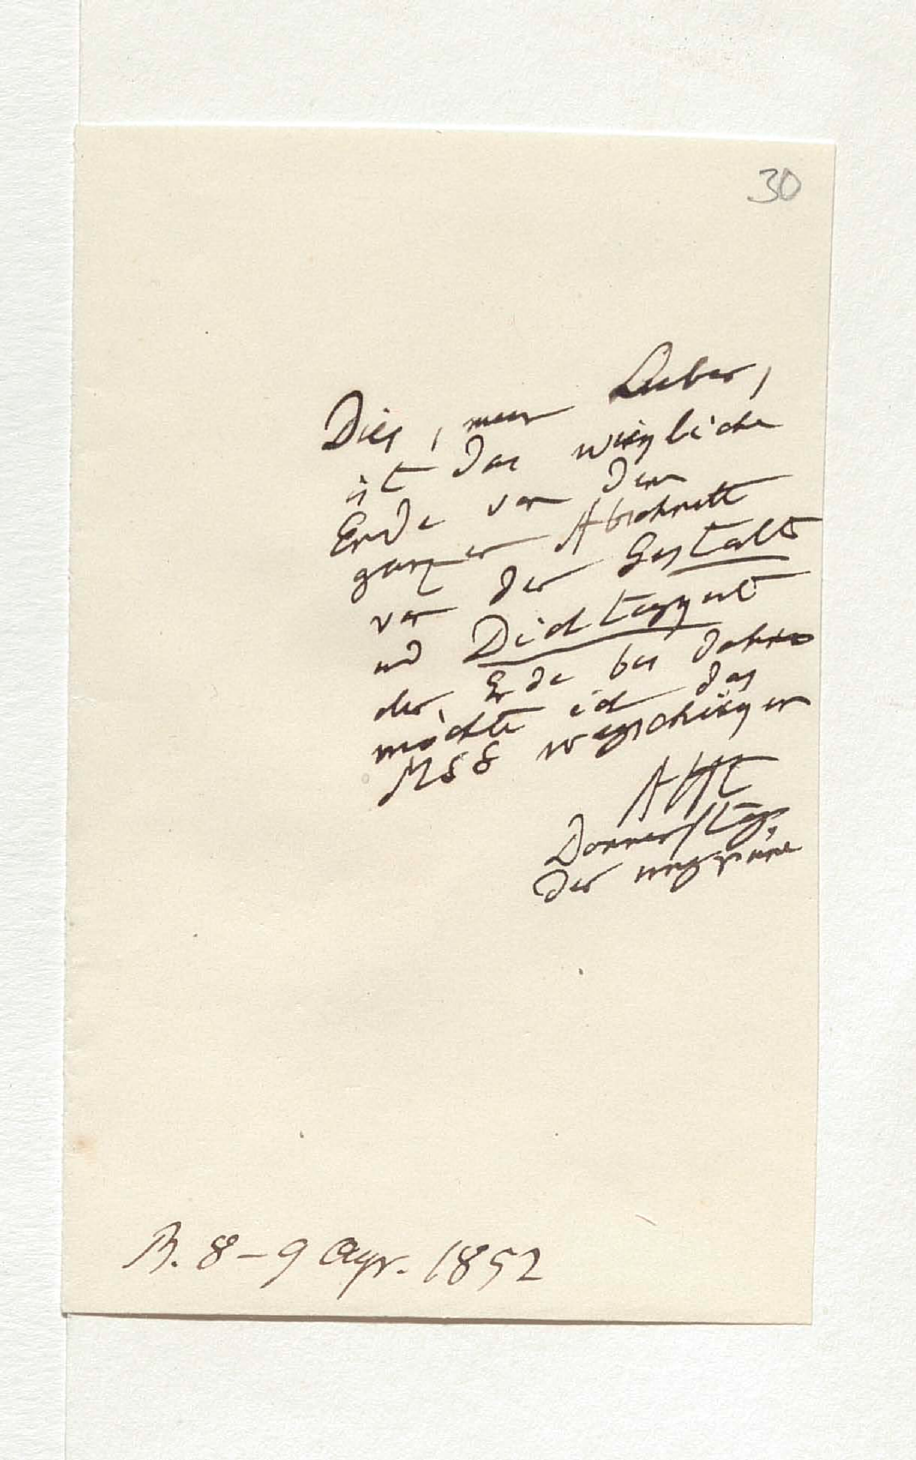 30
Dies, mein Lieber,
ist das wirkliche
Ende von dem
ganzen Abschnitt
von der Gestalt
und Dichtigkeit
der Erde bei
möchte ich das
MSS
AHt
Donnerstag
Der
B. 8–9 Apr. 1852